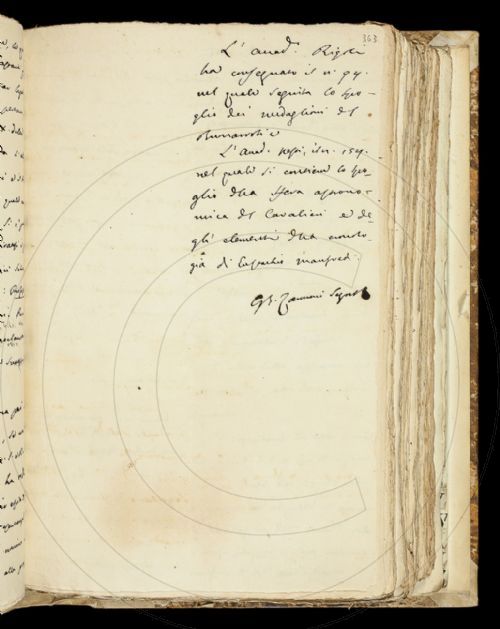 363
L' Accad. Rigoli
ha consegnato il n. 94.
nel quale seguita lo spo-
glio dei medaglioni del
Buonarroti e
L'Accad. , il n. 154.
nel quale si contiene lo spo
glio della sfera astrono-
mica del Cavalieri e de-
gli elementi della cronolo-
gia di Manfredi.
Gb. Zannoni Segret.